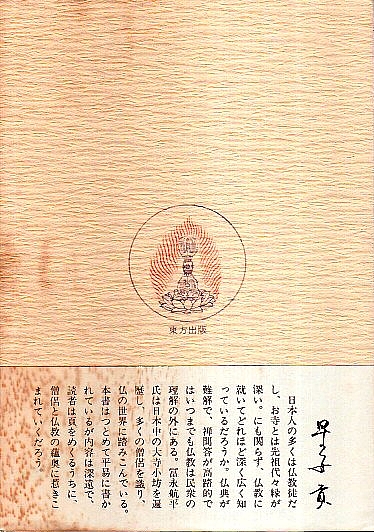 東方出版
日本人の多くは仏教徒だ
し、お寺とは先祖代々縁が
深い。にも関らず、仏教に
就いてどれほど深く広く知
っているだろうか。仏典が
難解で、禅問答が高踏的で
はいつまでも仏教は民衆の
理解の外にある。冨永航平
氏は日本中の大寺小坊を遍
歴し、多くの僧侶を識り、
仏の世界に踏みこんでいる。
本書はつとめて平易に書か
れているが内容は深遠で、
読者は頁をめくるうちに、
僧侶と仏教の蘊奥に惹きこ
まれていくだろう。